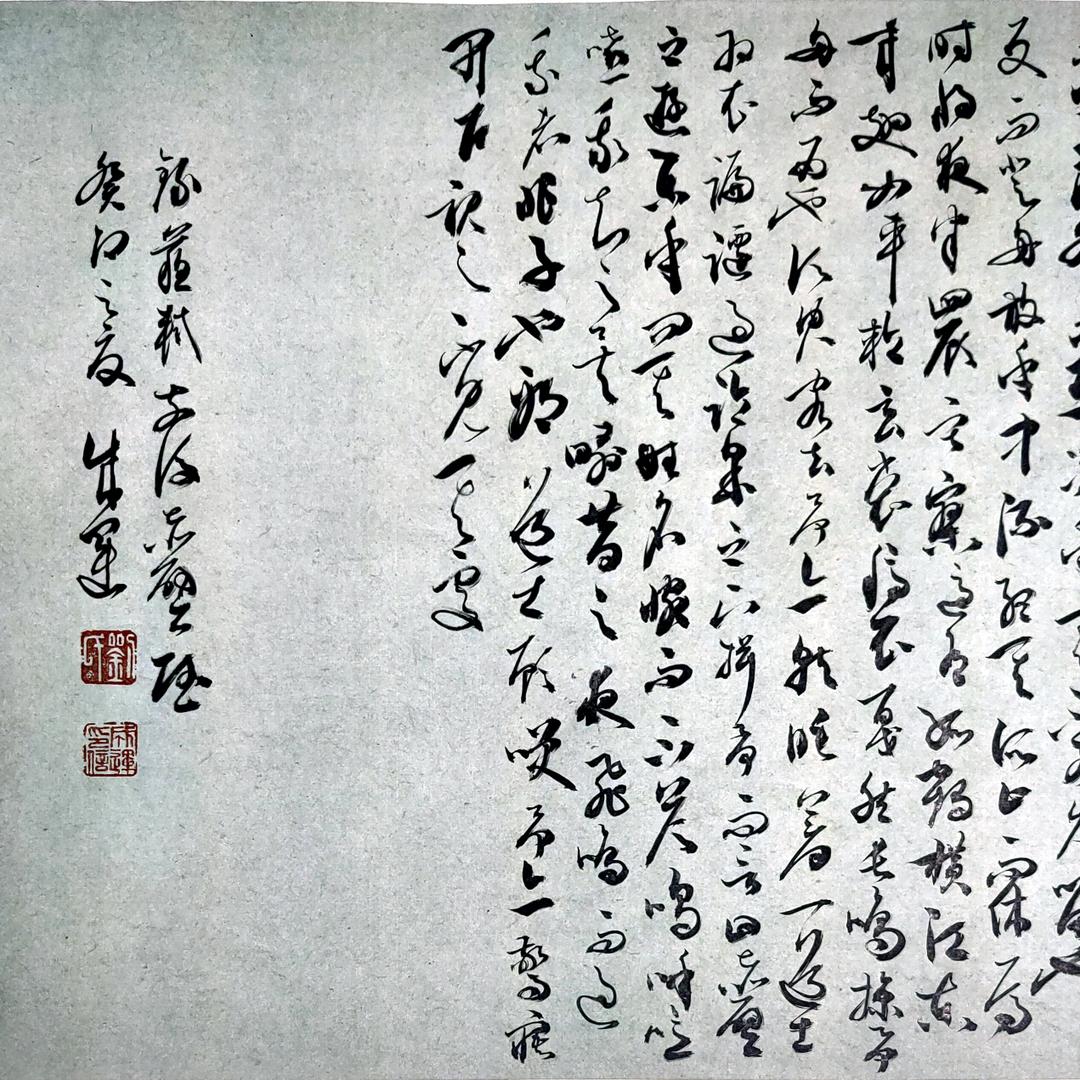 反而登舟放乎中流聽其所止而休焉
時將夜半四顧寂寥適有孤鶴橫江東
來翅如車輪玄裳縞衣戛然長鳴掠予
舟而西也須臾客去予亦就睡夢一道士
羽衣蹁躚過臨皋之下揖予而言曰赤壁
之遊樂乎問其姓名俛而不答嗚呼噫
嘻我知之矣疇昔之夜飛鳴而過
我者非子也邪道士顧笑予亦驚寤
開戶視之不見其處
錄蘇軾後赤壁賦
癸卯之夏 成運
劉氏
成運印信